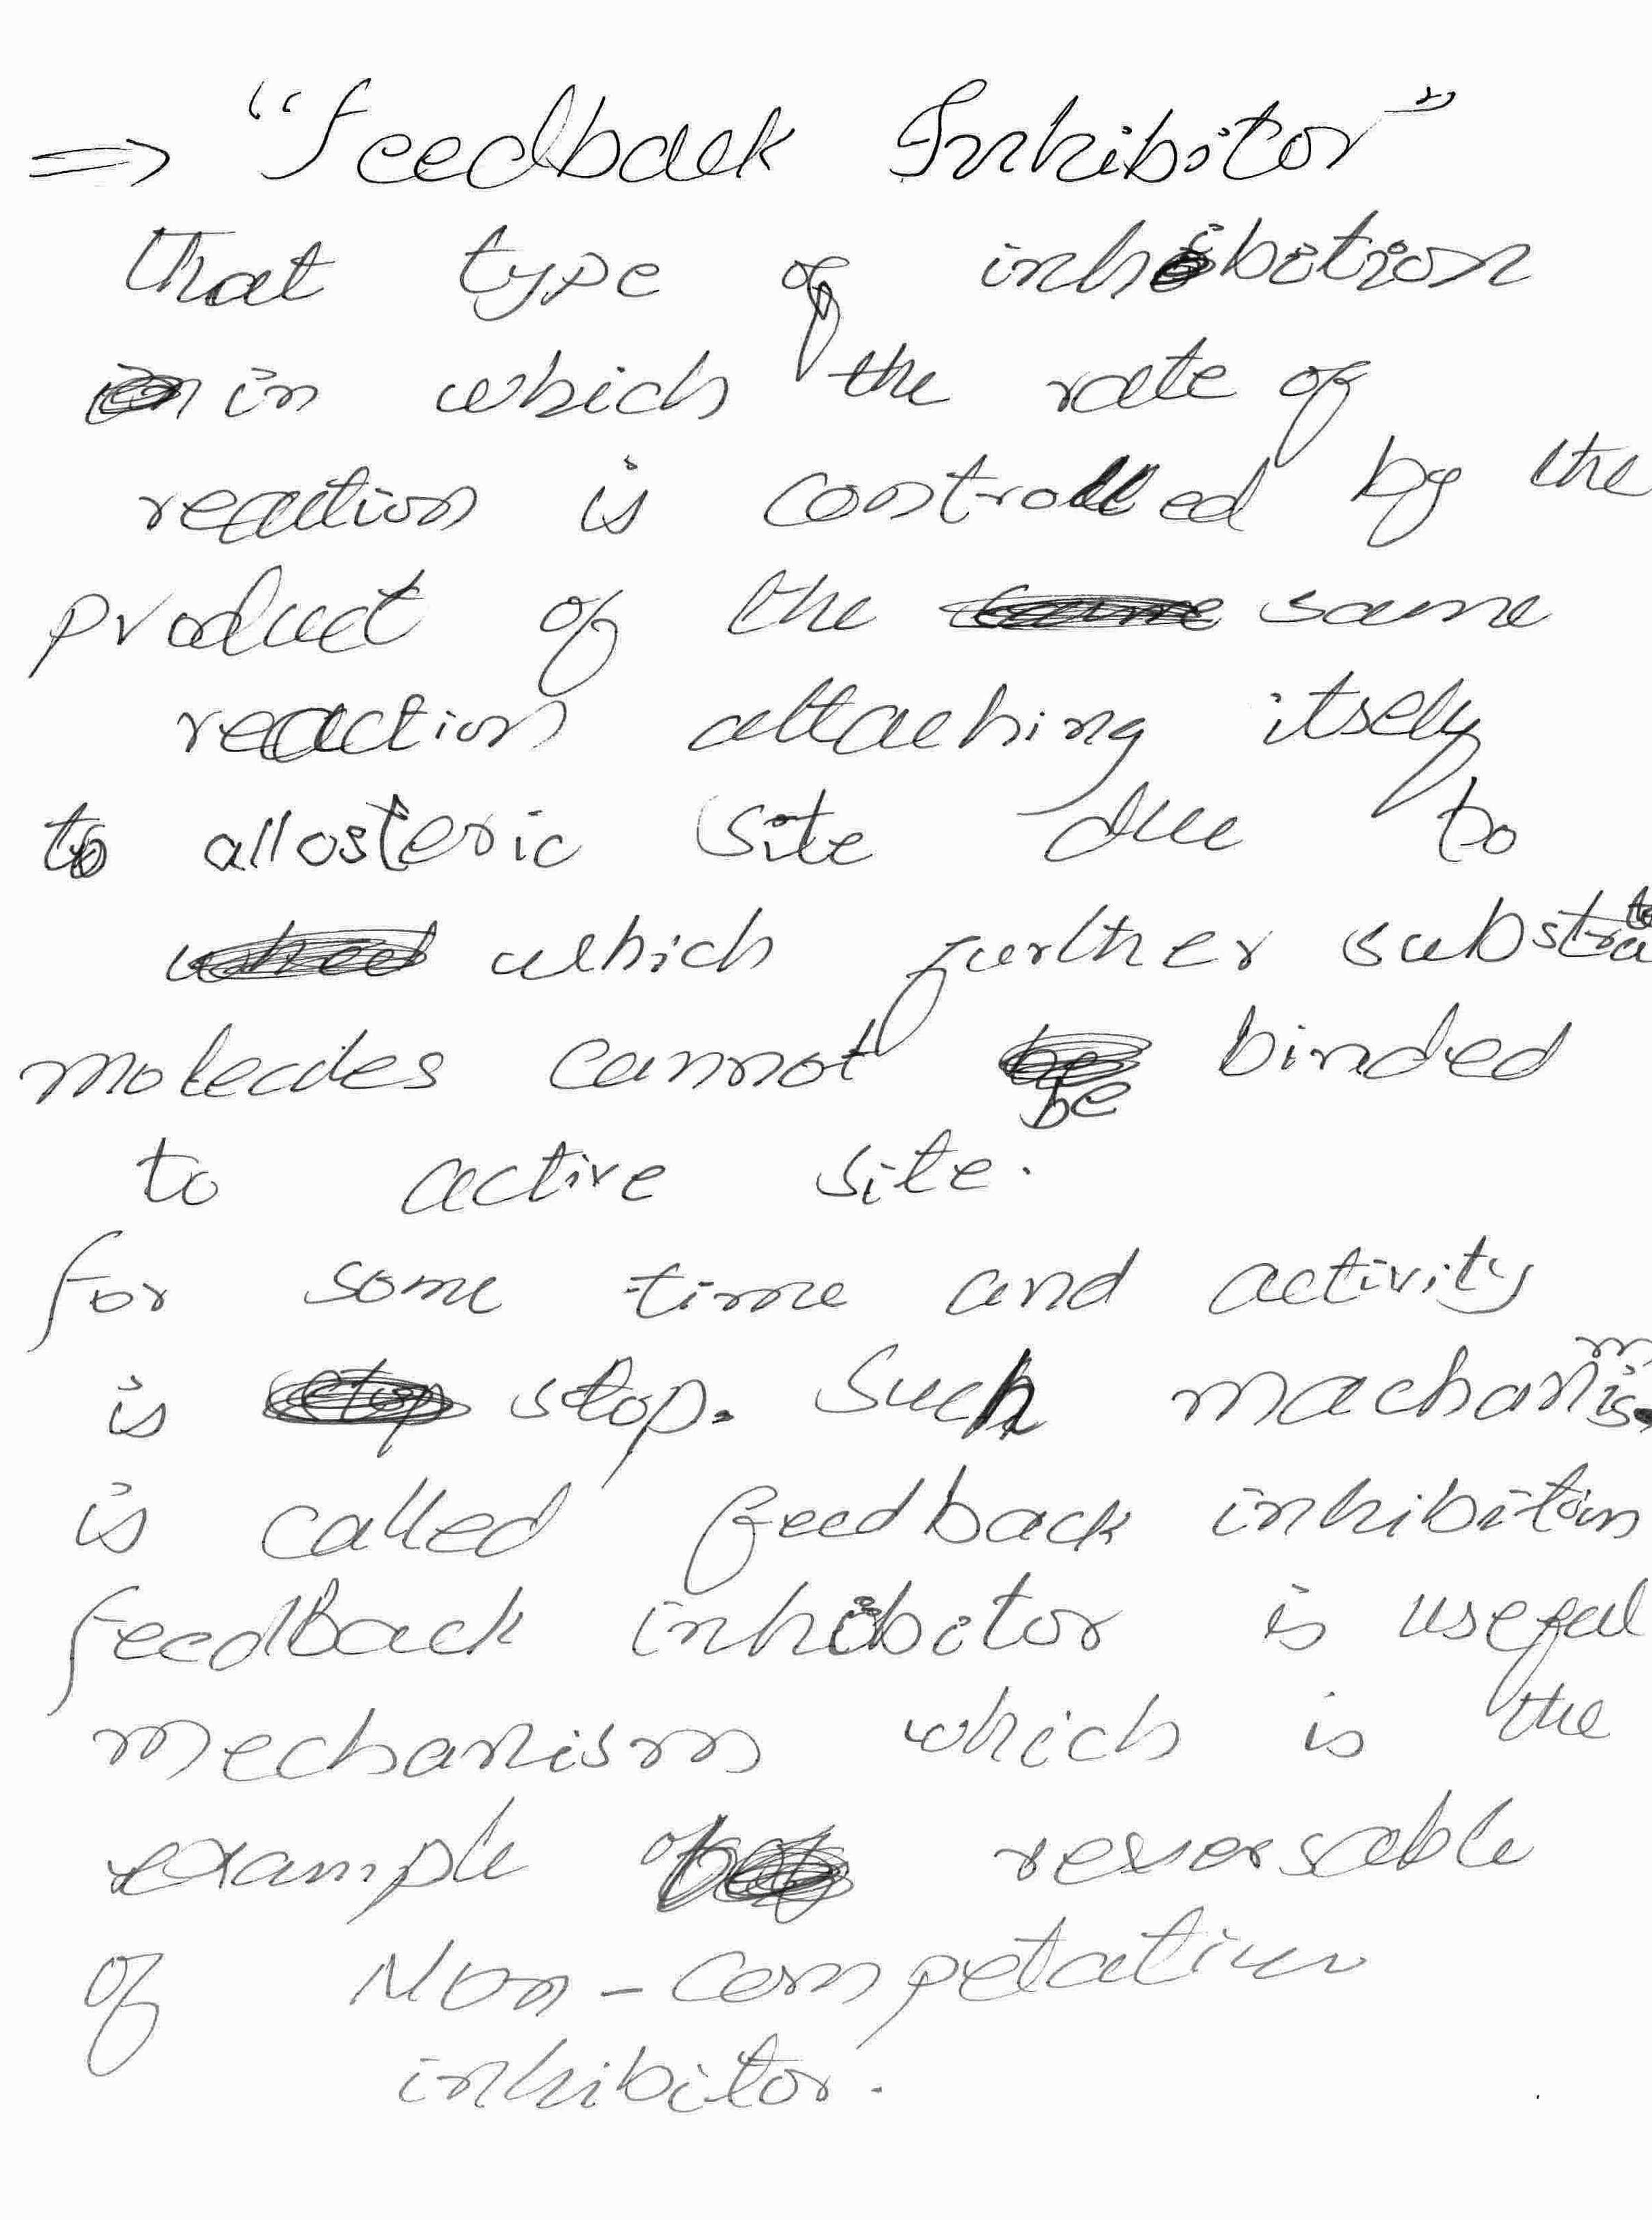 ⇒ "Feedback Inhibitor"
that type of inhibition
in which the rate of
reaction is controlled by the
product of the same
reaction attaching itself
to allosteric site due to
which further substrate
molecules cannot be binded
to active site.
for some time and activity
is stop. Such machanism
is called feedback inhibition
feedback inhibitor is useful
mechanism which is the
example of reversable
of Non-competative
inhibitor.